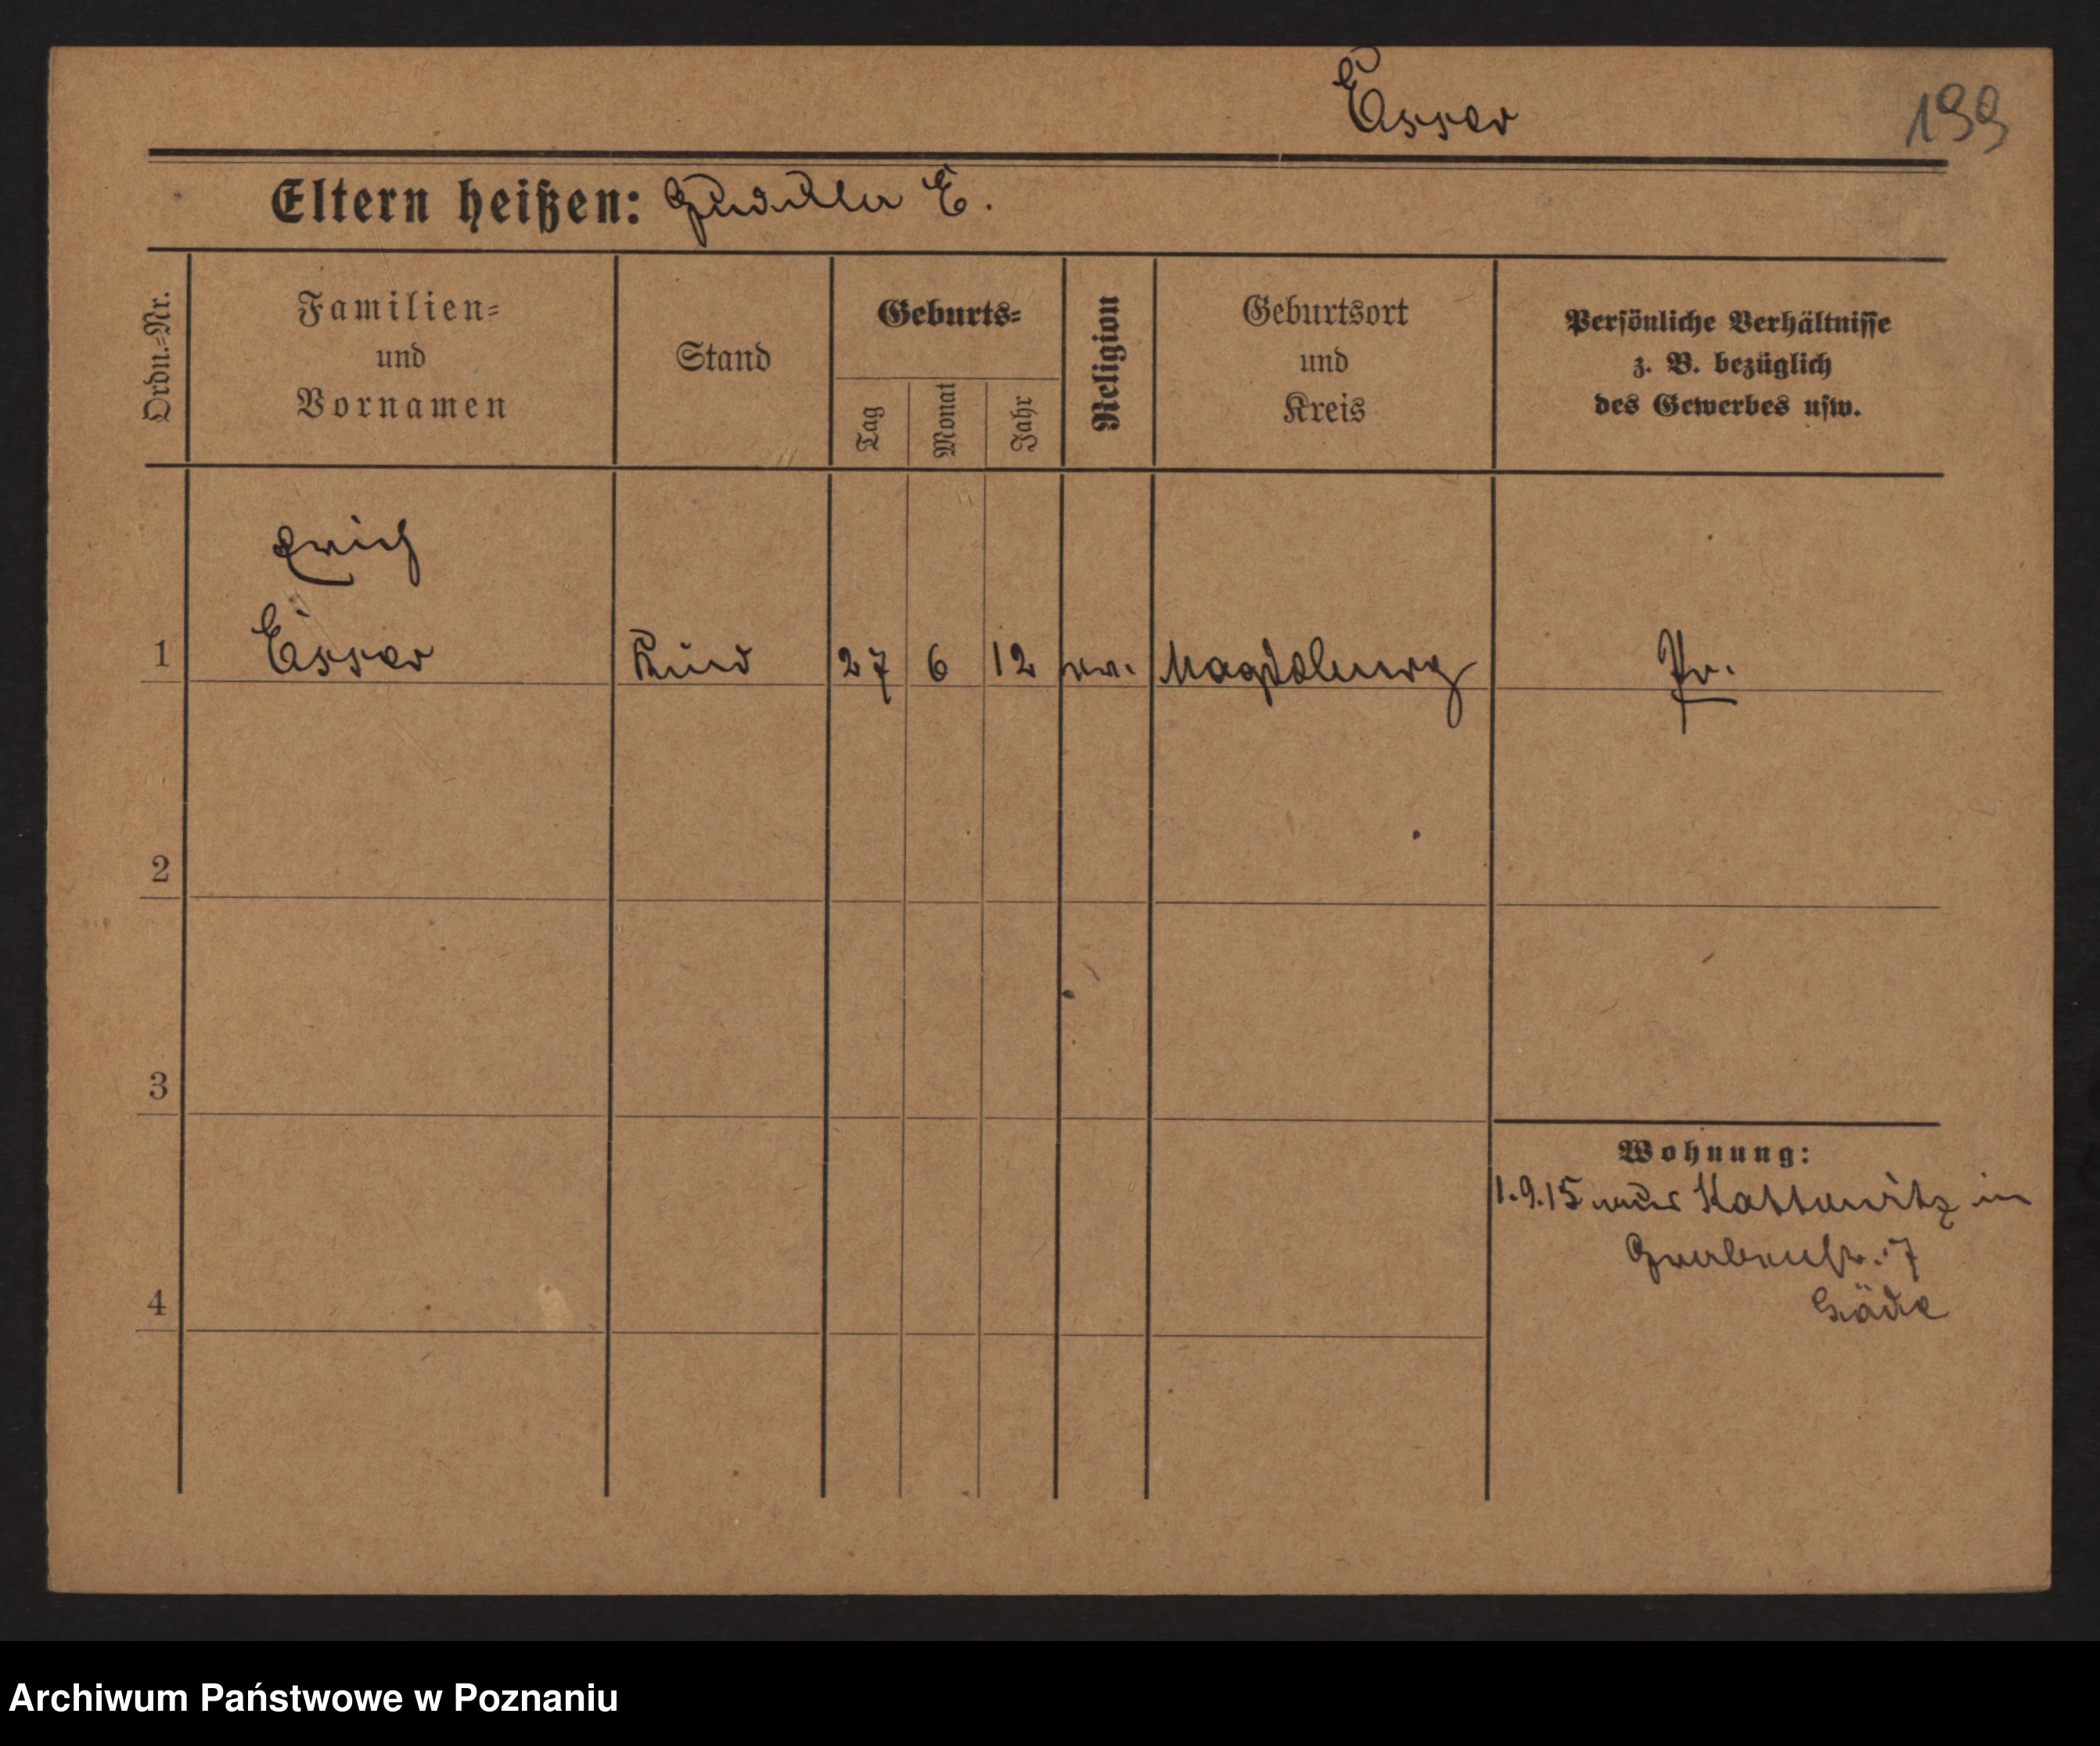 Esser
199
Eltern heißen: Gudulla E.
Ordn.-Nr.
Familien-
und
Vornamen
Stand
Geburts-
Tag
Monat
Jahr
Religion
Geburtsort
und
Kreis
Persönliche Verhältnisse
z. B. bezüglich
des Gewerbes usw.
Erich
1 Esser Kind 27 6 12 ev. Magdeburg Pr.
2
3
4
Wohnung:
1.9.15 aus Kattowitz in
Grabenstr. 7
Archiwum Państwowe w Poznaniu